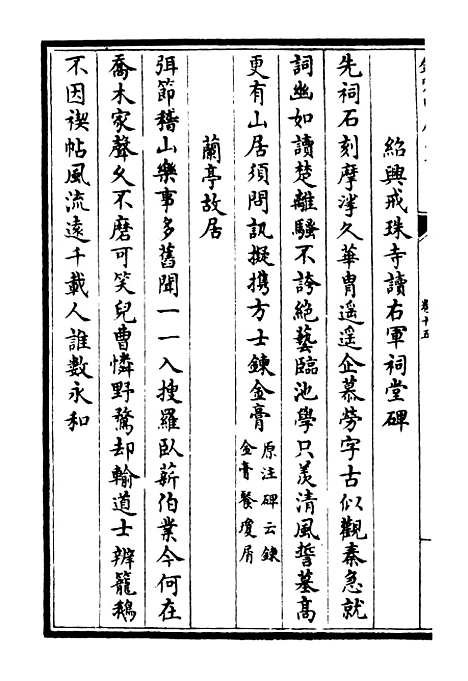 紹興戒珠寺讀右軍祠堂碑
先祠石刻摩挲久華胄遥遥企慕勞字古似觀秦急就
詞幽如讀楚離騷不誇絶藝臨池學只羨清風誓墓高
更有山居須問訊擬携方士鍊金膏原注碑云鍊金膏餐瓊屑
蘭亭故居
弭節稽山樂事多舊聞一一入搜羅臥薪伯業今何在
喬木家聲久不磨可笑兒曹憐野鶩却輸道士辨籠鵝
不因禊帖風流遠千載人誰數永和
卷十五